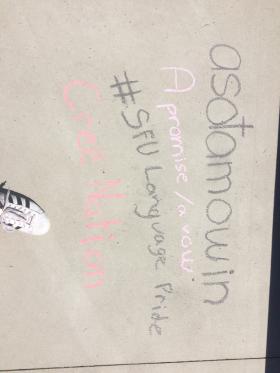 asotamowin
A promise/a vow
#SFU Language Pride
Cree Nation